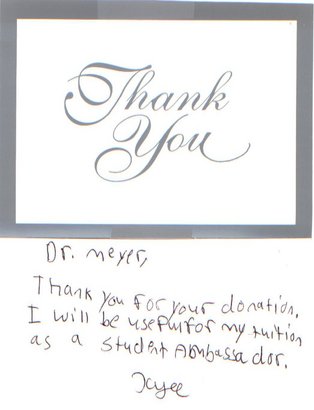 Thank
You
Dr. Meyer,
Thank you for your donation.
I will be useful for my tuition
as a student Ambbassador.